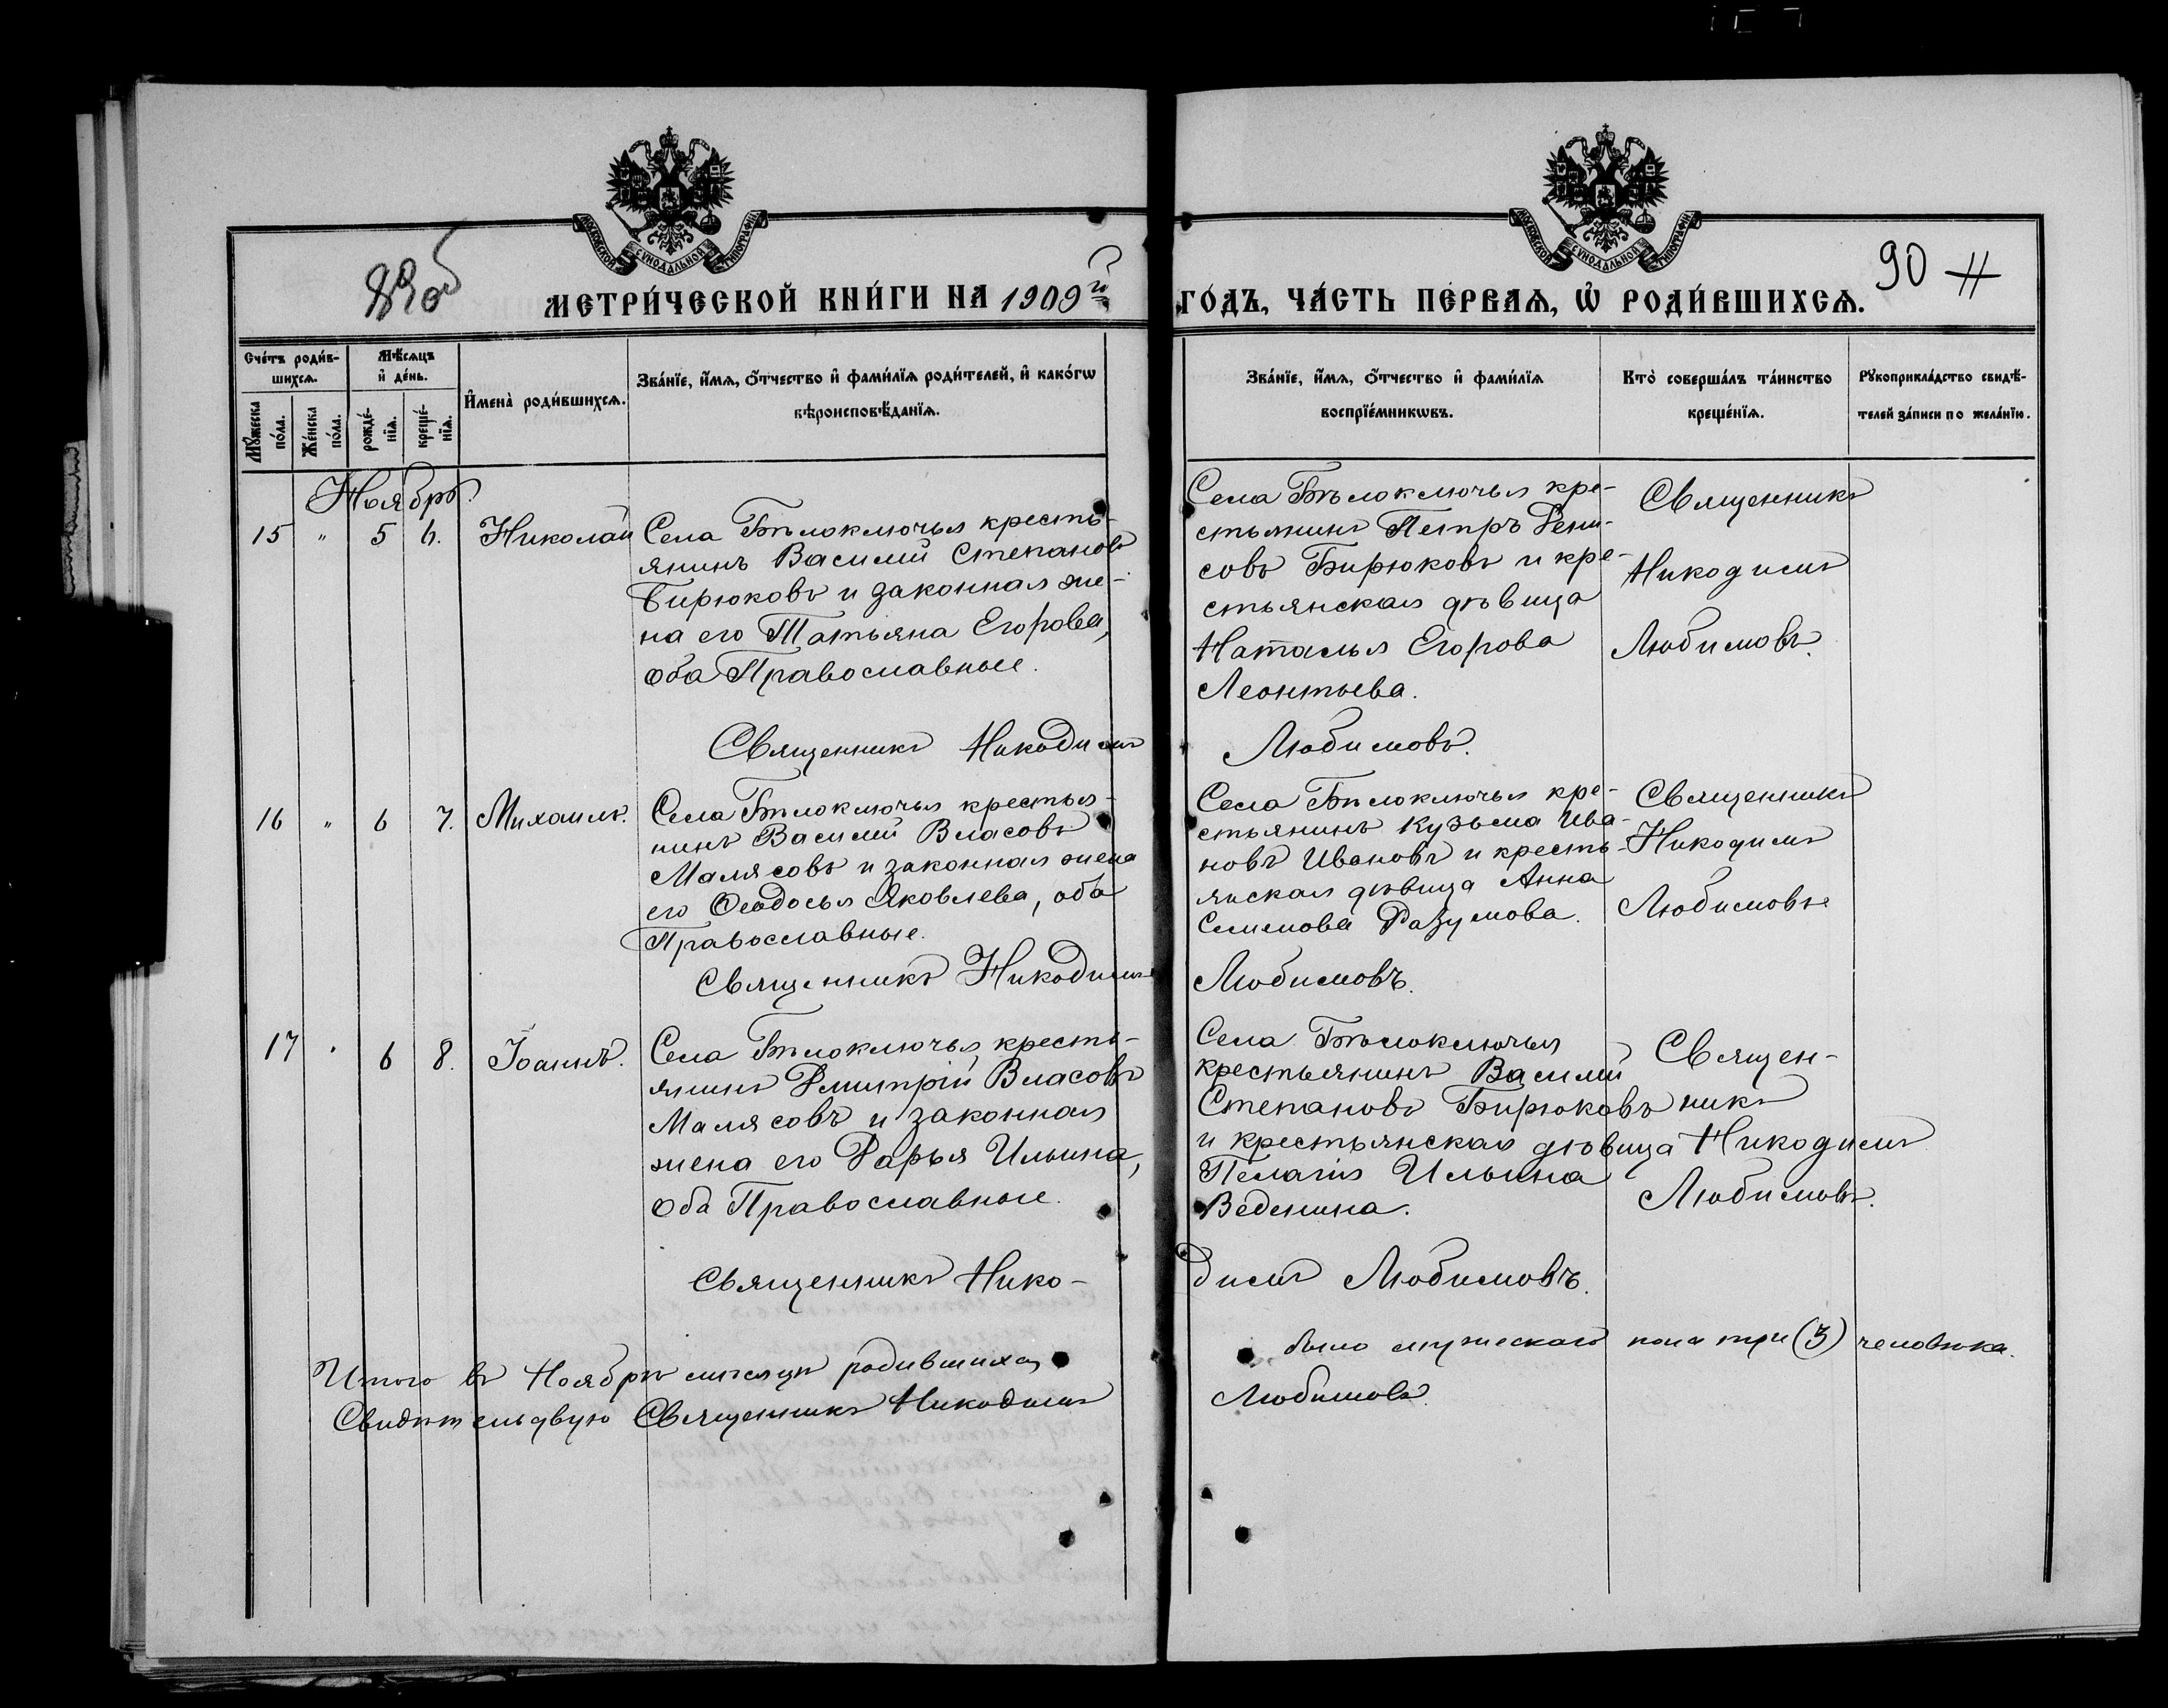 МОСКОВСКОЙ СѴНОДАЛЬНОЙ ТИПОГРАФІИ
МОСКОВСКОЙ СѴНОДАЛЬНОЙ ТИПОГРАФІИ
89об
90
МЕТРИ́ЧЕСКОЙ КНИ́ГИ НА 1909й
ГО́ДЪ, ЧА́СТЬ ПЕ́РВАѦ, Ѡ҆ РОДИ́ВШИХСѦ.
Сче́тъ роди́в-
шихсѧ.
Мꙋ́жеска по́ла.
Же́нска по́ла.
Мѣ́сѧцъ
и҆ де́нь.
рожде́-
нїѧ.
креще́-
нїѧ.
И҆мена̀ роди́вшихсѧ.
Зва́нїе, и҆́мѧ, ѻ҆́тчество и҆ фами́лїѧ роди́телей, и҆ како́гѡ
вѣроисповѣ́данїѧ.
Зва́нїе, и҆́мѧ, ѻ҆́тчество и҆ фами́лїѧ
воспрїе́мникѡвъ.
Кто̀ соверша́лъ та́инство
креще́нїѧ.
Рꙋкоприкла́дство свидѣ́-
телей за́писи по жела́нїю.
Ноябрь.
15 " 5 6. Николай
Села Бѣлоключья кресть-
янинъ Василий Степановъ
Бирюковъ и законная же-
на его Татьяна Егорова,
оба Православные.
Села Бѣлоключья кре-
стьянинъ Петръ Дени-
совъ Бирюковъ и кре-
стьянская дѣвица
Наталья Егорова
Леонтьева.
Священникъ
Никодимъ
Любимовъ.
Священникъ Никодимъ Любимовъ.
16 " 6 7. Михаилъ.
Села Бѣлоключья крестья-
нинъ Василий Власовъ
Малясовъ и законная жена
его Ѳеодосья Яковлева, оба
Православные.
Села Бѣлоключья кре-
стьянинъ Кузьма Ива-
новъ Ивановъ и кресть-
янская дѣвица Анна
Семенова Разумова.
Священникъ
Никодимъ
Любимовъ
Священникъ Никодимъ Любимовъ.
17 " 6 8. Іоаннъ.
Села Бѣлоключья кресть-
янинъ Дмитрій Власовъ
Малясовъ и законная
жена его Дарья Ильина,
Оба Православные.
Села Бѣлоключья
крестьянинъ Василий
Степановъ Бирюковъ
и крестьянская дѣвица
Пелагія Ильина
Веденина.
Священ-
никъ
Никодимъ
Любимовъ.
Священникъ Нико-
димъ Любимовъ.
Итого въ Ноябрѣ мѣсяцѣ родившихся было мужескаго пола три (3) человѣка.
Свидѣтельдвую Священникъ Никодимъ Любимовъ.